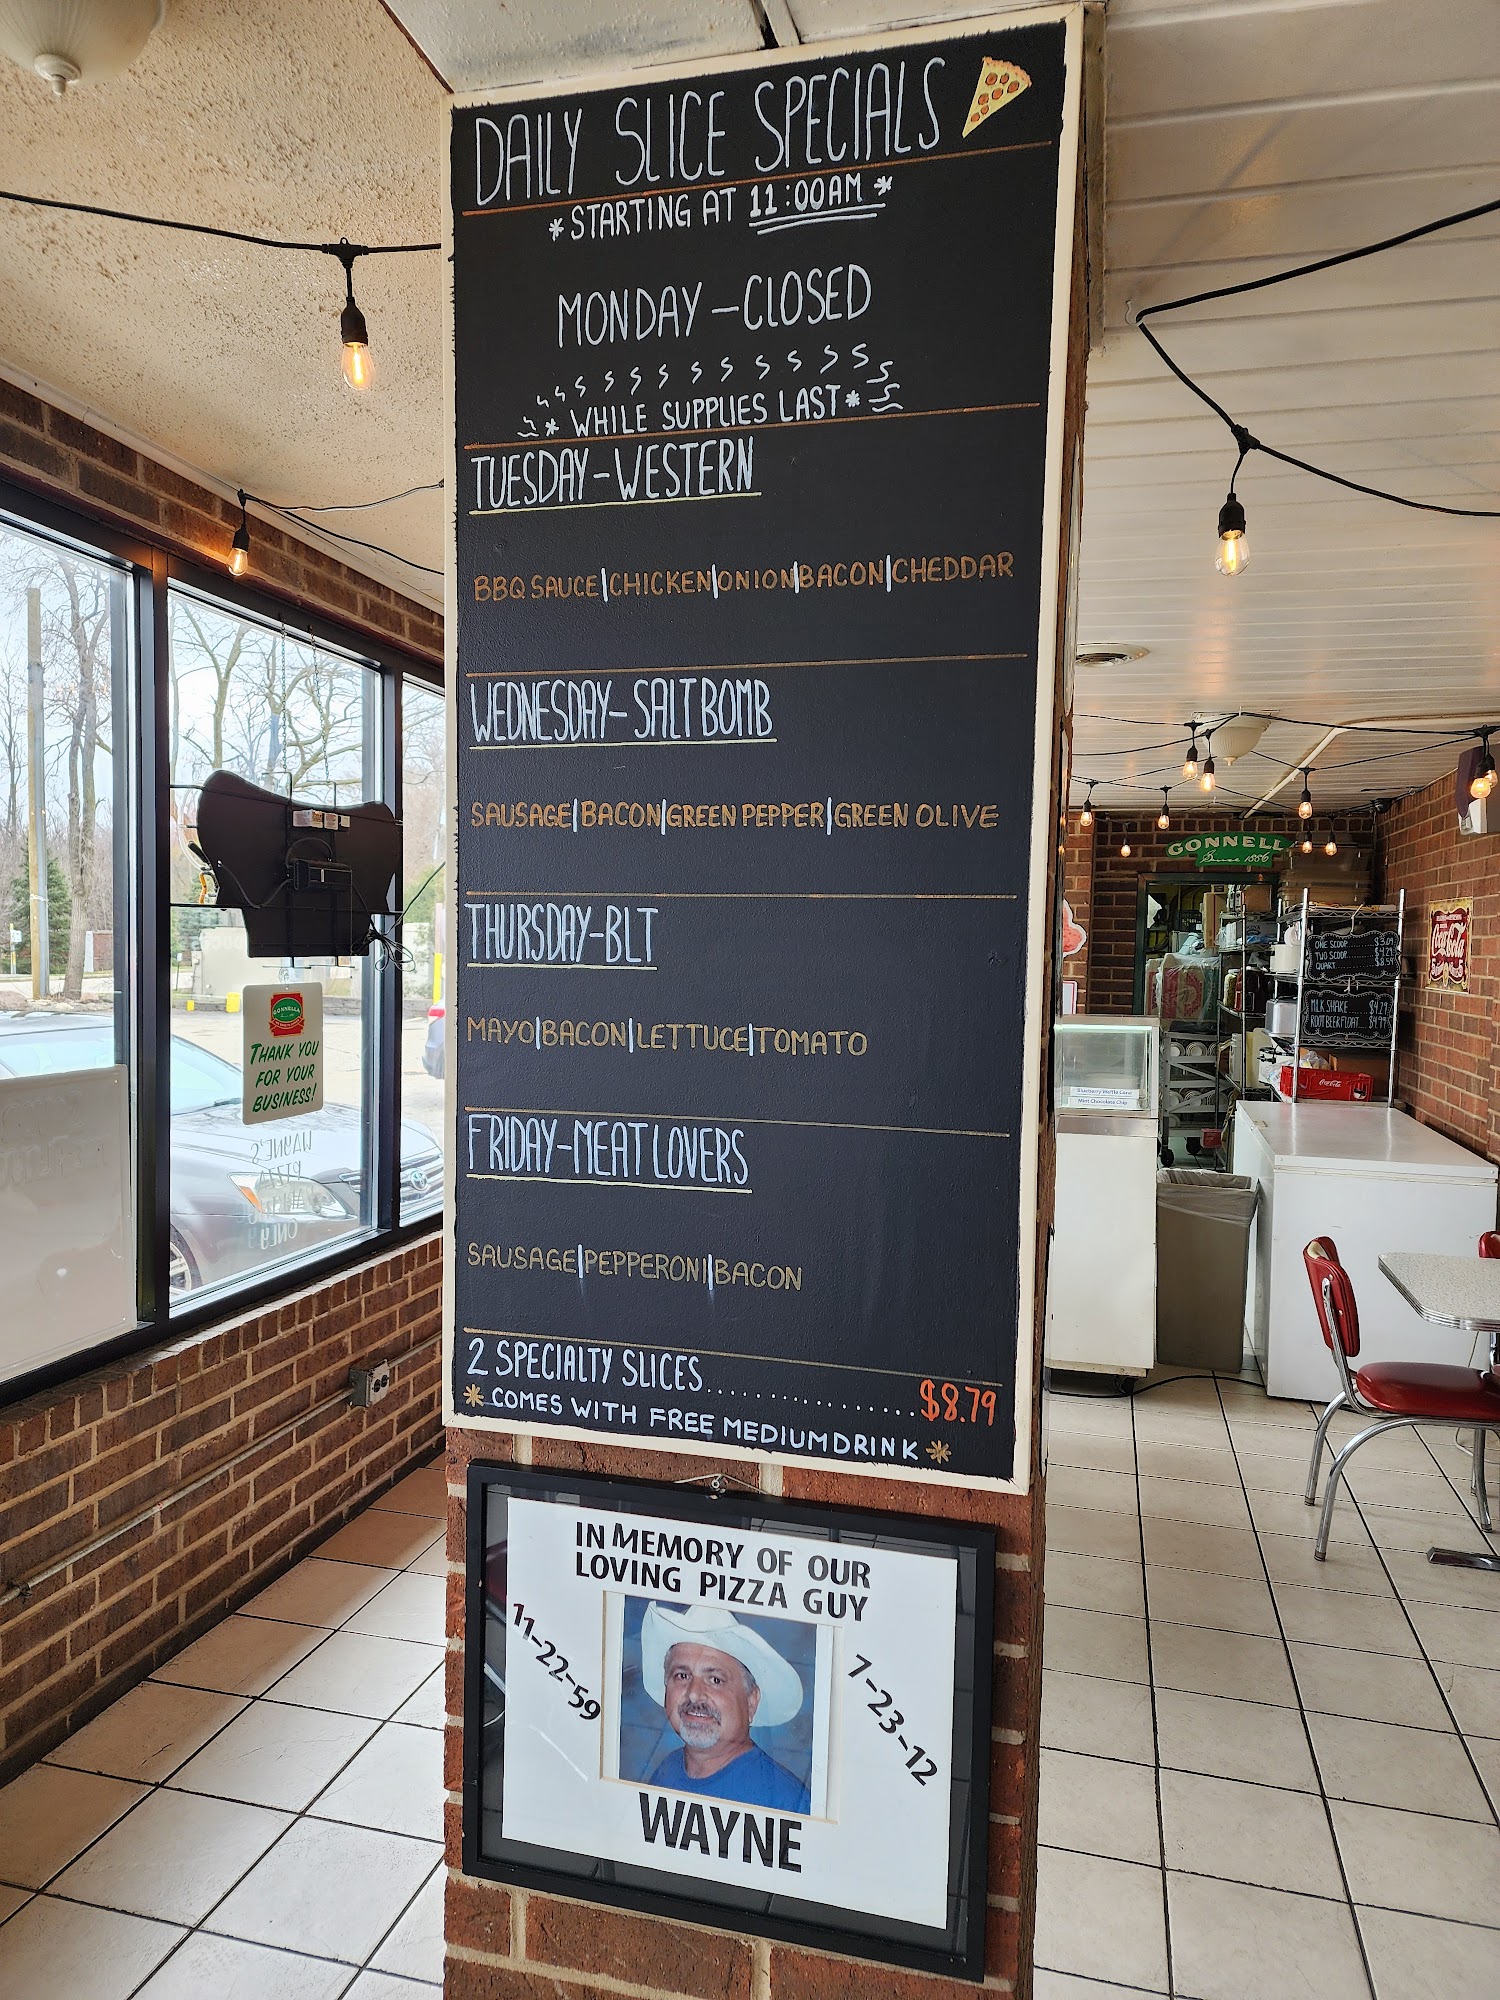 DAILY SLICE SPECIALS
*STARTING AT 11:00AM*
MONDAY-CLOSED
*WHILE SUPPLIES LAST*
TUESDAY-WESTERN
BBQ SAUCE|CHICKEN|ONION|BACON|CHEDDAR
WEDNESDAY-SALT BOMB
SAUSAGE|BACON|GREEN PEPPER|GREEN OLIVE
THURSDAY-BLT
MAYO|BACON|LETTUCE|TOMATO
FRIDAY-MEAT LOVERS
SAUSAGE|PEPPERONI|BACON
2 SPECIALTY SLICES....................$8.79
*COMES WITH FREE MEDIUM DRINK*
IN MEMORY OF OUR
LOVING PIZZA GUY
11-22-59
7-23-12
WAYNE
GONNELLA
THANK YOU
FOR YOUR
BUSINESS!
WAYNE'S
ONLY
GONNELL
Since 1886
Coca-Cola
ONE SCOOP $3.09
TWO SCOOP $4.29
QUART $8.59
MILK SHAKE $4.79
ROOT BEER FLOAT $4.99
Coca-Cola
Blueberry Waffle Cone
Mint Chocolate Chip